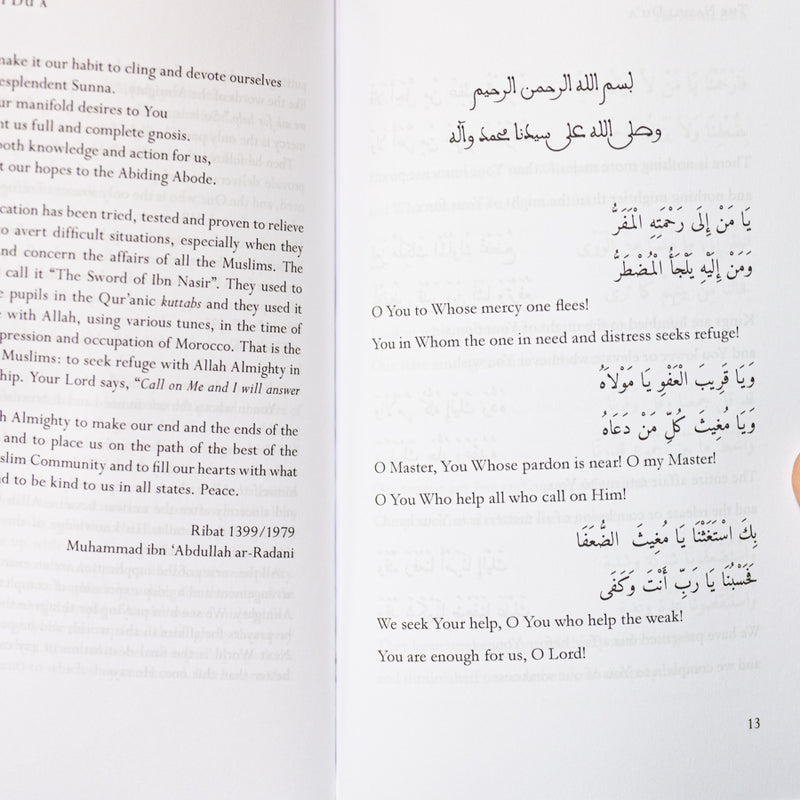 Du'a
make it our habit to cling and devote ourselves
esplendent Sunna.
ur manifold desires to You
nt us full and complete gnosis.
both knowledge and action for us,
t our hopes to the Abiding Abode.
cation has been tried, tested and proven to relieve
o avert difficult situations, especially when they
nd concern the affairs of all the Muslims. The
call it “The Sword of Ibn Nasir”. They used to
e pupils in the Qur’anic kuttabs and they used it
e with Allah, using various tunes, in the time of
pression and occupation of Morocco. That is the
Muslims: to seek refuge with Allah Almighty in
hip. Your Lord says, “Call on Me and I will answer
h Almighty to make our end and the ends of the
and to place us on the path of the best of the
slim Community and to fill our hearts with what
nd to be kind to us in all states. Peace.
Ribat 1399/1979
Muhammad ibn ‘Abdullah ar-Radani
بسم الله الرحمن الرحيم
وصلى الله على سيدنا محمد وآله
يَا مَنْ إِلَى رَحْمَتِهِ الْمَفَرُّ
وَمَنْ إِلَيْهِ يَلْجَأُ الْمُضْطَرُّ
O You to Whose mercy one flees!
You in Whom the one in need and distress seeks refuge!
وَيَا قَرِيبَ الْعَفْوِ يَا مَوْلَاهُ
وَيَا مُغِيثَ كُلِّ مَنْ دَعَاهُ
O Master, You Whose pardon is near! O my Master!
O You Who help all who call on Him!
بِكَ اسْتَغَثْنَا يَا مُغِيثَ الضُّعَفَا
فَحَسْبُنَا يَا رَبِّ أَنْتَ وَكَفَى
We seek Your help, O You who help the weak!
You are enough for us, O Lord!
13